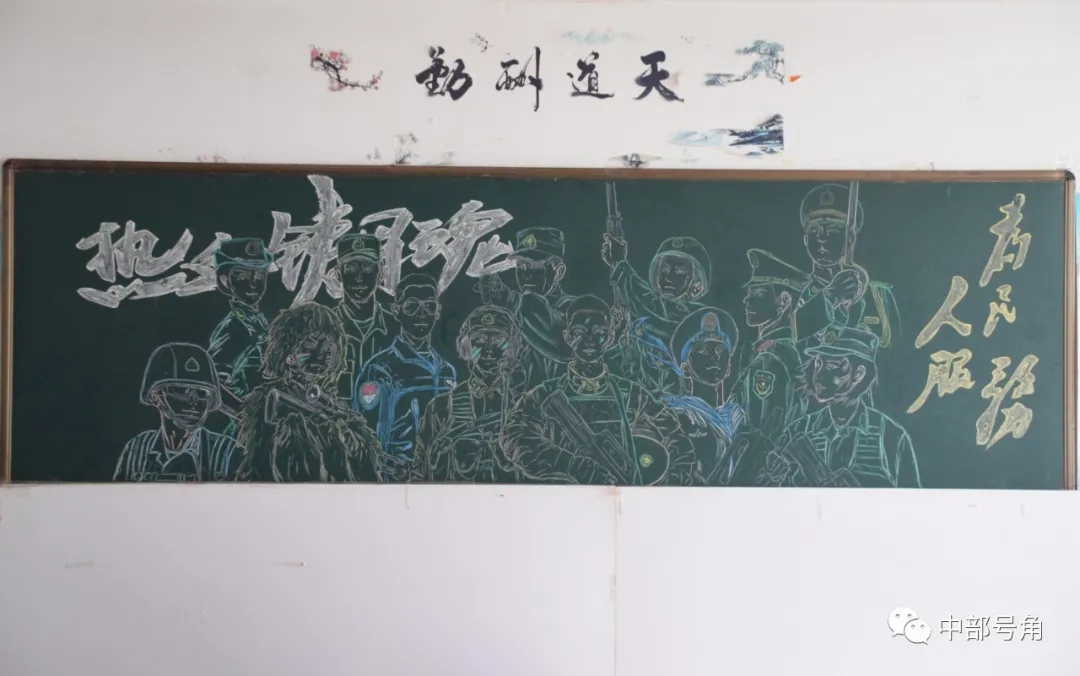 天道酬勤
热血铸军魂
为人民服务
中部号角